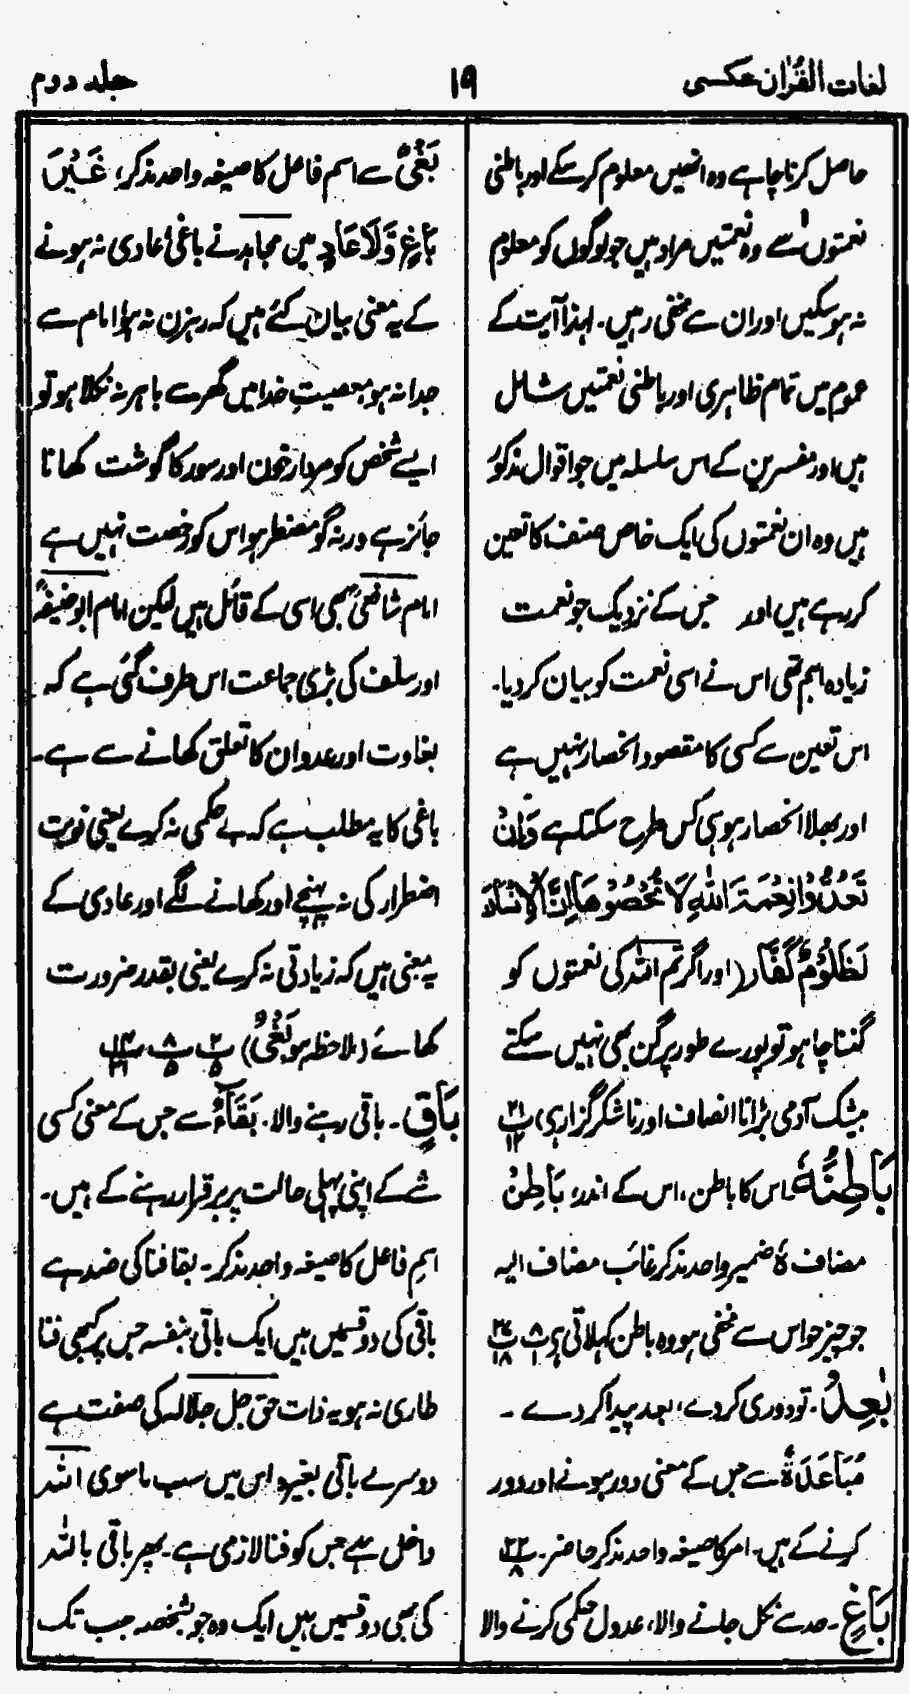 لغات القرآن عکسی
۱۹
جلد دوم
حاصل کرنا چاہے وہ انھیں معلوم کر سکے اور باطنی
نعمتوں سے وہ نعمتیں مراد ہیں جو لوگوں کو معلوم
نہ ہو سکیں اور ان سے مخفی رہیں۔ لہذا آیت کے
عموم میں تمام ظاہری اور باطنی نعمتیں شامل
ہیں اور مفسرین کے اس سلسلہ میں جو اقوال مذکور
ہیں وہ ان نعمتوں کی ایک خاص صنف کا تعین
کر رہے ہیں اور جس کے نزدیک جو نعمت
زیادہ اہم تھی اس نے اسی نعمت کو بیان کر دیا۔
اس تعین سے کسی کا مقصود انحصار نہیں ہے
اور بھلا انحصار ہو ہی کس طرح سکتا ہے وَاِنْ
تَعُدُّوْا نِعْمَةَ اللّٰهِ لَا تُحْصُوْهَا اِنَّ الْاِنْسَانَ
لَظَلُوْمٌ كَفَّارٌ (اور اگر تم اللہ کی نعمتوں کو
گننا چاہو تو پورے طور پر گن بھی نہیں سکتے
بیشک آدمی بڑا نا انصاف اور ناشکر گزار ہی) پ ۲۱ ۱۲
بَاطِنُهٗ۔ اس کا باطن، اس کے اندر، بَاطِنُ
مضاف ہٗ ضمیر واحد مذکر غائب مضاف الیہ
جو چیز حواس سے مخفی ہو وہ باطن کہلاتی ہی پ ۸ ۱ پ ۲۷ ۱۸
بٰعِدْ۔ تو دوری کر دے، بعد پیدا کر دے۔
مُبَاعَدَةٌ سے جس کے معنی دور ہونے اور دور
کرنے کے ہیں۔ امر کا صیغہ واحد مذکر حاضر۔ پ ۲۲ ۸
بَاغٍ۔ حد سے نکل جانے والا، عدول حکمی کرنے والا
بَغْیٌ سے اسم فاعل کا صیغہ واحد مذکر، غَيْرَ
بَاغٍ وَّلَا عَادٍ میں مجاہد نے باغی/عادی نہ ہونے
کے یہ معنی بیان کئے ہیں کہ رہزن نہ ہو امام سے
جدا نہ ہو، معصیتِ خدا میں گھر سے باہر نہ نکلا ہو تو
ایسے شخص کو مردار خون اور سور کا گوشت کھانا
جائز ہے ورنہ گو مضطر ہو اس کو رخصت نہیں ہے
امام شافعیؒ بھی اسی کے قائل ہیں لیکن امام ابو حنیفہؒ
اور سلف کی بڑی جماعت اس طرف گئی ہے کہ
بغاوت اور عدوان کا تعلق کھانے سے ہے۔
باغی کا یہ مطلب ہے کہ بے حکمی نہ کرے یعنی نوبت
اضطرار کی نہ پہنچے اور کھانے لگے اور عادی کے
یہ معنی ہیں کہ زیادتی نہ کرے یعنی بقدر ضرورت
کھائے (ملاحظہ ہو بَغْیٌ) پ ۲ ۵ پ ۸ ۵ پ ۱۴ ۲۱
بَاقٍ۔ باقی رہنے والا۔ بَقَاءٌ سے جس کے معنی کسی
شے کے اپنی پہلی حالت پر برقرار رہنے کے ہیں۔
اسم فاعل کا صیغہ واحد مذکر۔ بقا فنا کی ضد ہے
باقی کی دو قسمیں ہیں ایک باقی بنفسہ جس پر کبھی فنا
طاری نہ ہو یہ ذات حق جل جلالہ کی صفت ہے
دوسرے باقی بغیرہ اس میں سب ماسوی اللہ
داخل ہے جس کو فنا لازمی ہے۔ پھر باقی باللہ
کی بھی دو قسمیں ہیں ایک وہ جو بشخصہ جب تک